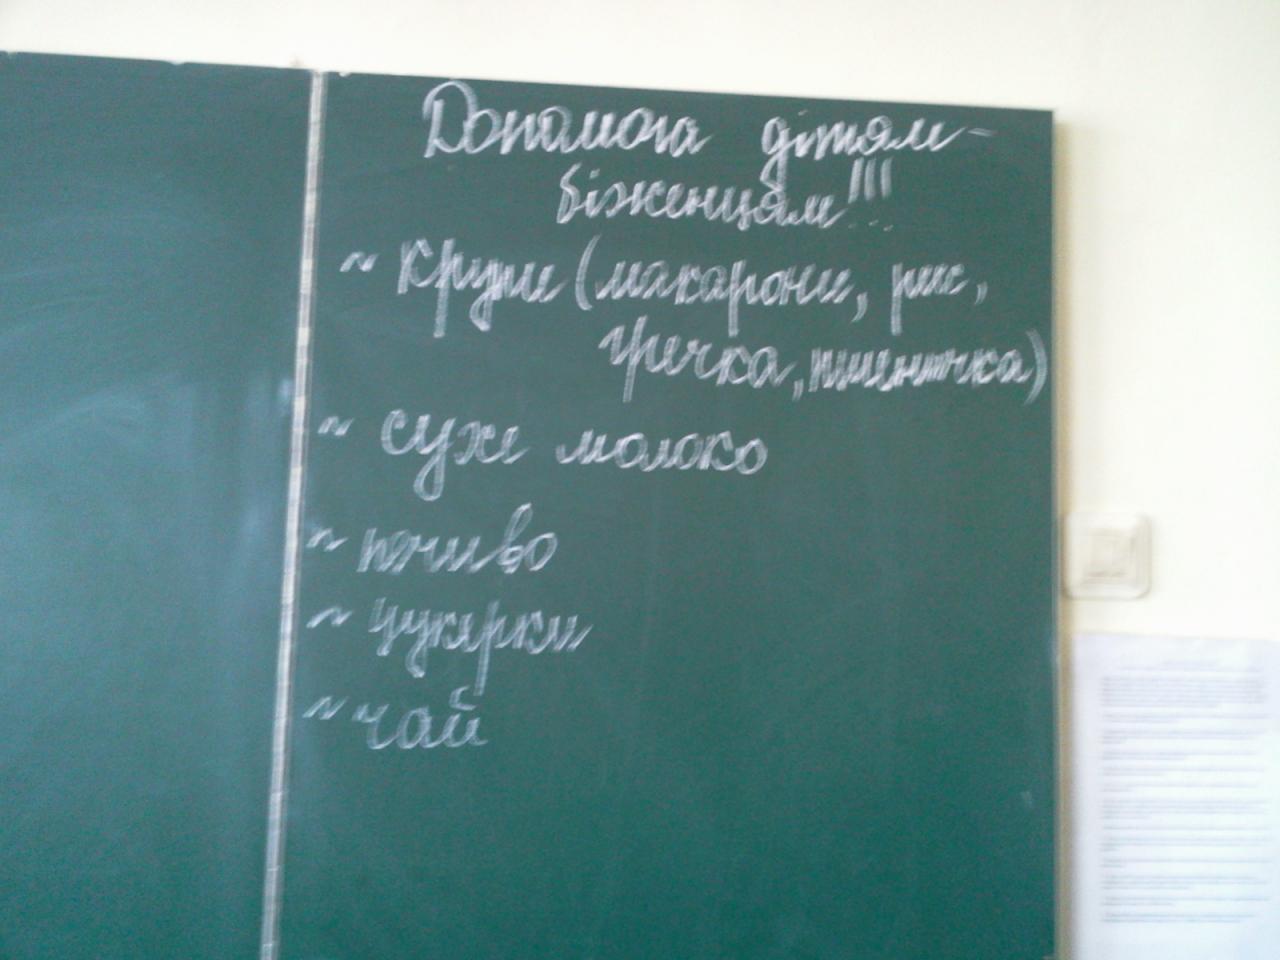 Допомога дітям-
біженцям!!!
~ крупи (макарони, рис,
гречка, пшеничка)
~ сухе молоко
~ печиво
~ цукерки
~ чай